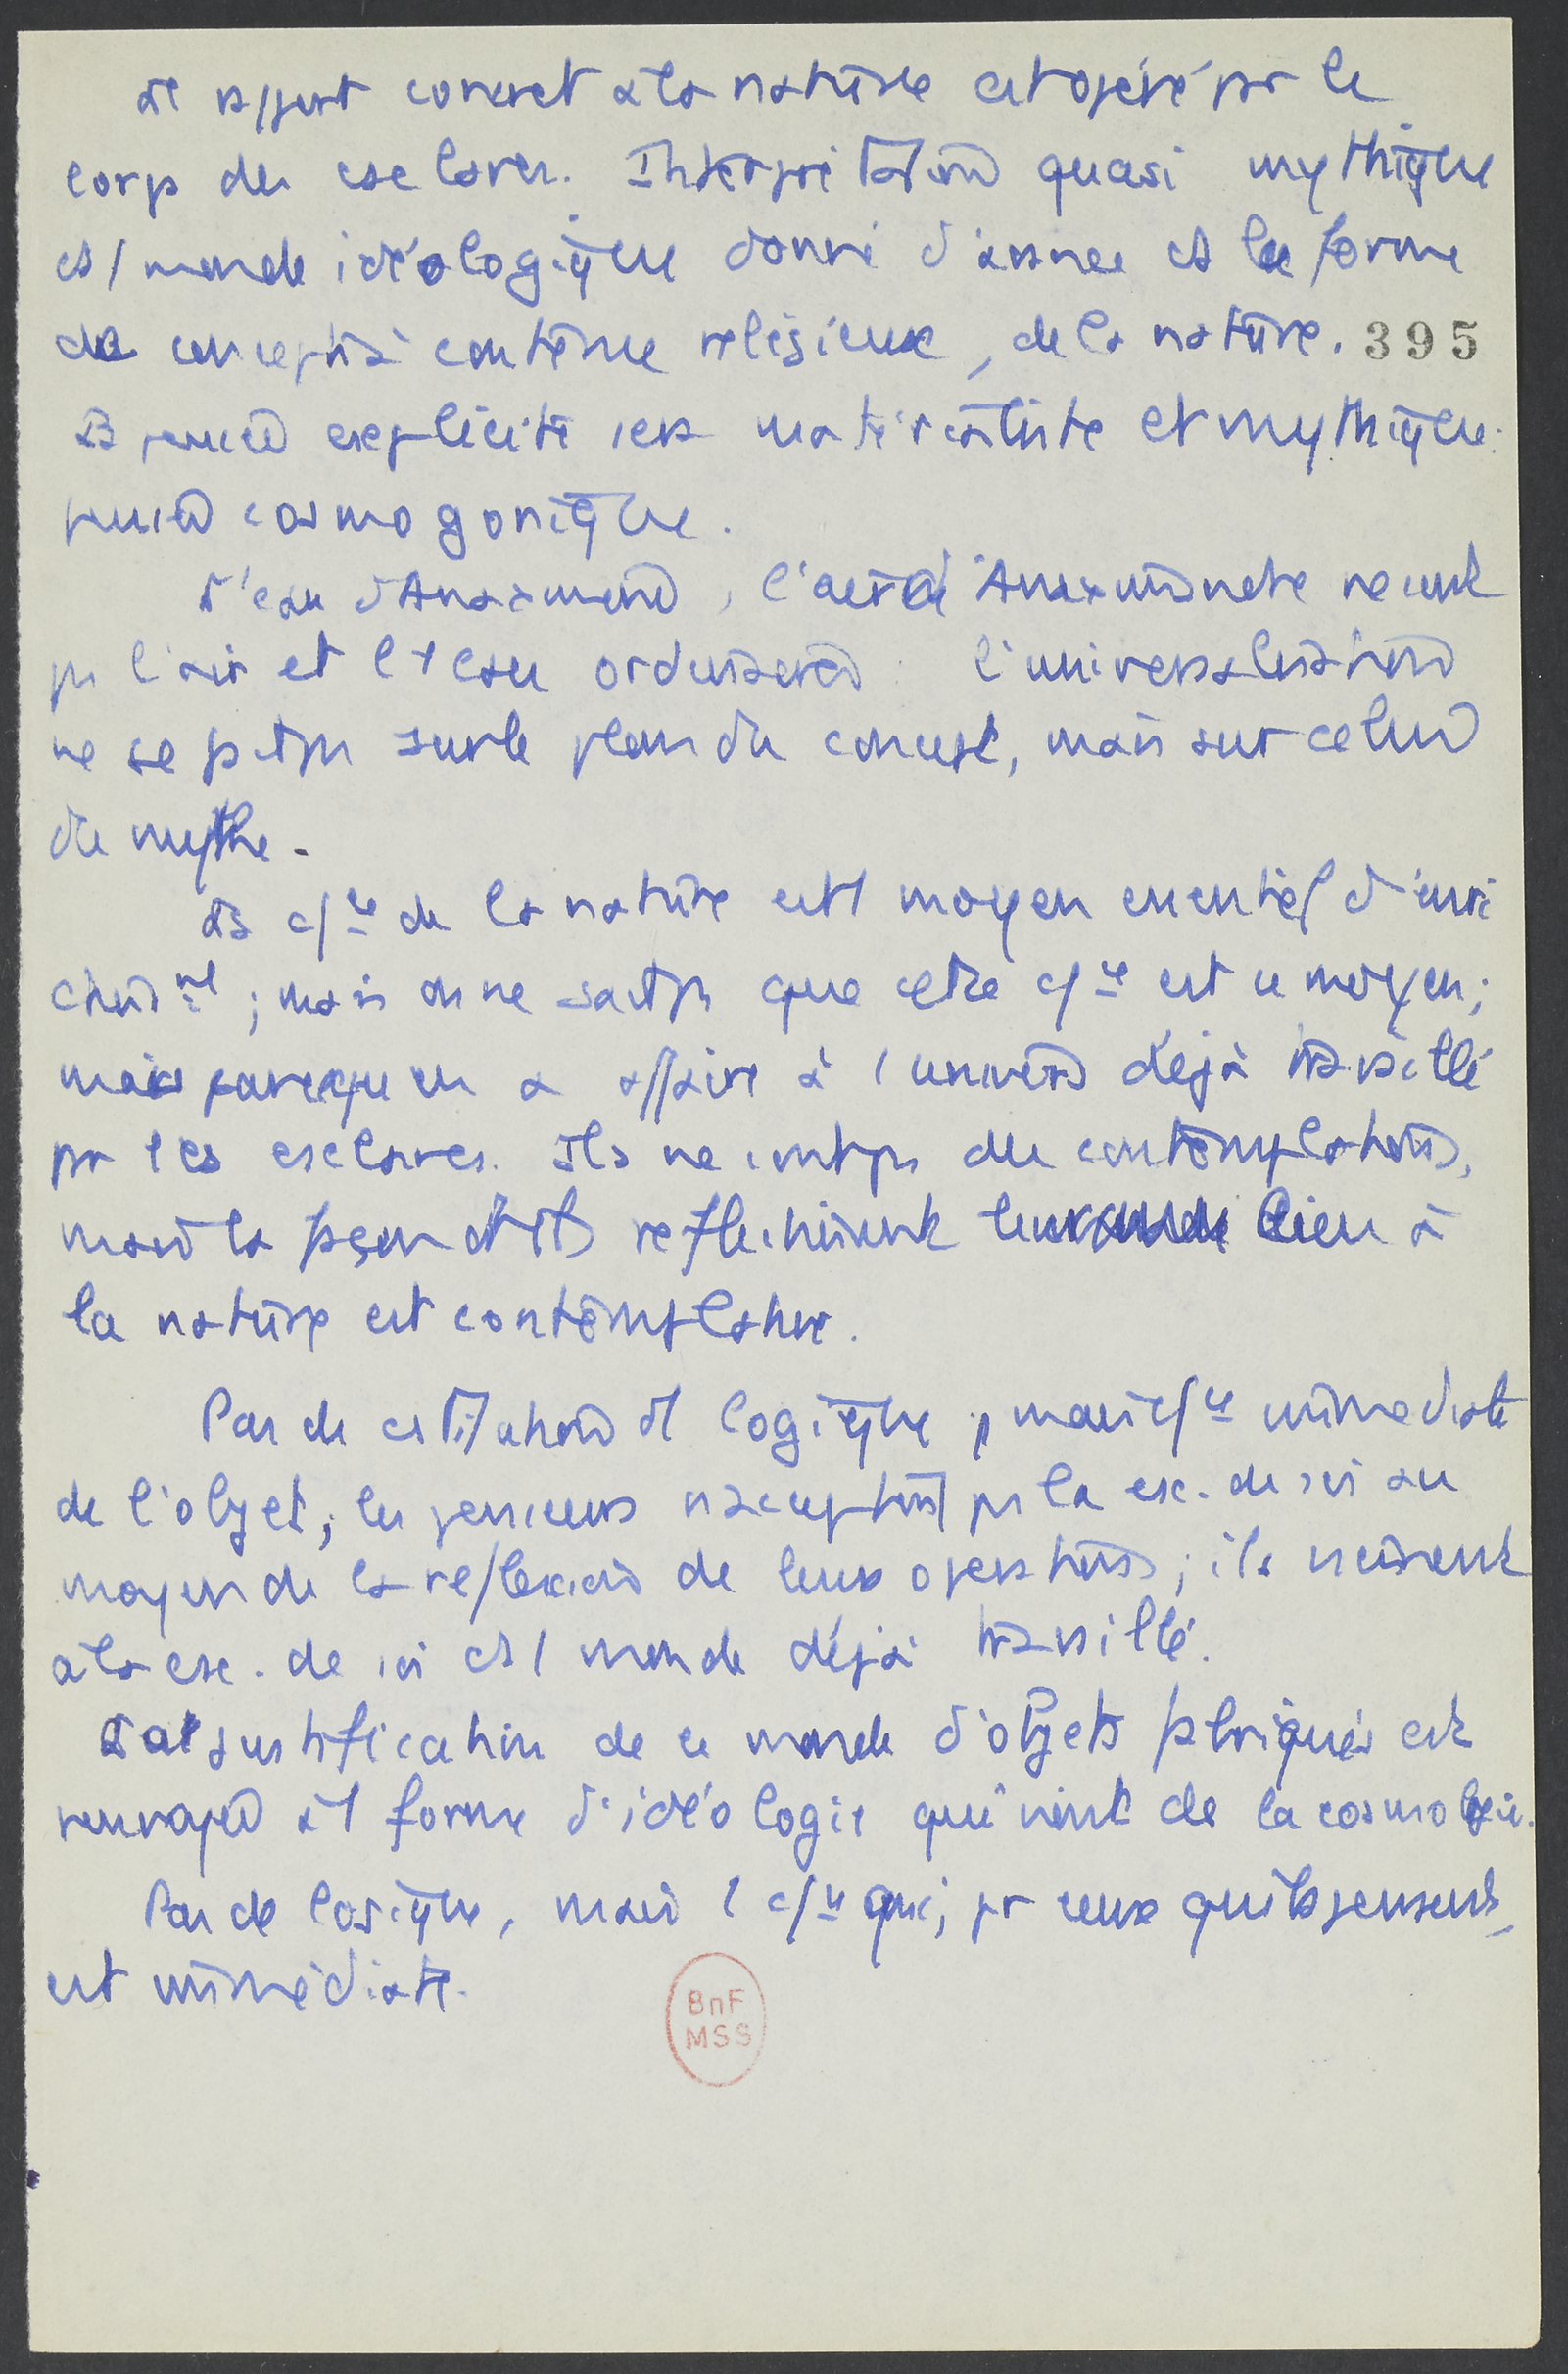 Le rapport concret à la nature est opéré par le
corps des esclaves. Interprétation quasi mythique
et / monde idéologique donné d'avance et la forme
de concepts à contenu religieux, de la nature. 395
La pensée explicite sera matérialiste et mythique :
pensée cosmogonique.
L'eau d'Anaximend, l'air d'Anaximandre ne sont
pas l'air et l'eau ordinaires : l'universalisation
ne se fait pas sur le plan du concept, mais sur celui
du mythe.
La c/ce de la nature est / moyen essentiel d'enri
chisnt ; mais on ne sait pas que cette c/ce est ce moyen ;
mais parce qu'on a affaire à / univers déjà travaillé
par les esclaves. Ils ne sont pas des contemplatifs,
mais la façon dont ils réfléchissent leur lien à
la nature est contemplative.
Pas de logique, mais c/ce immédiate
de l'objet ; les penseurs n'acceptent pas la csc. de soi au
moyen de la réflexion de leurs opérations ; ils naissent
à la csc. de soi ds / monde déjà travaillé.
La justification de ce monde d'objets fabriqués est
renvoyée à / forme d'idéologie qui vient de la cosmologie.
Pas de logique, mais / c/ce qui, pr ceux qui la pensent,
est immédiate.
BnF
MSS